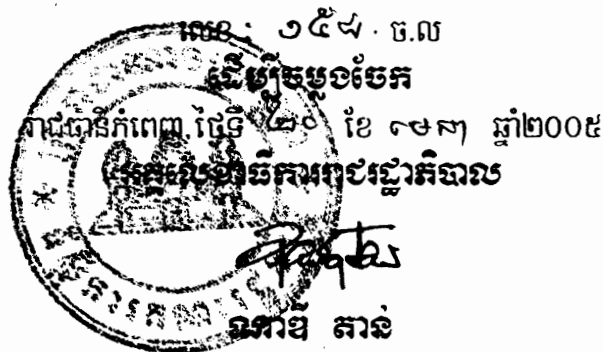 លេខ : ១៥៨ ច.ល
ដើម្បីចម្លងចែក
រាជធានីភ្នំពេញ, ថ្ងៃទី ២០ ខែ មេសា ឆ្នាំ២០០៥
អគ្គលេខាធិការរាជរដ្ឋាភិបាល
ណាឌី តាន់